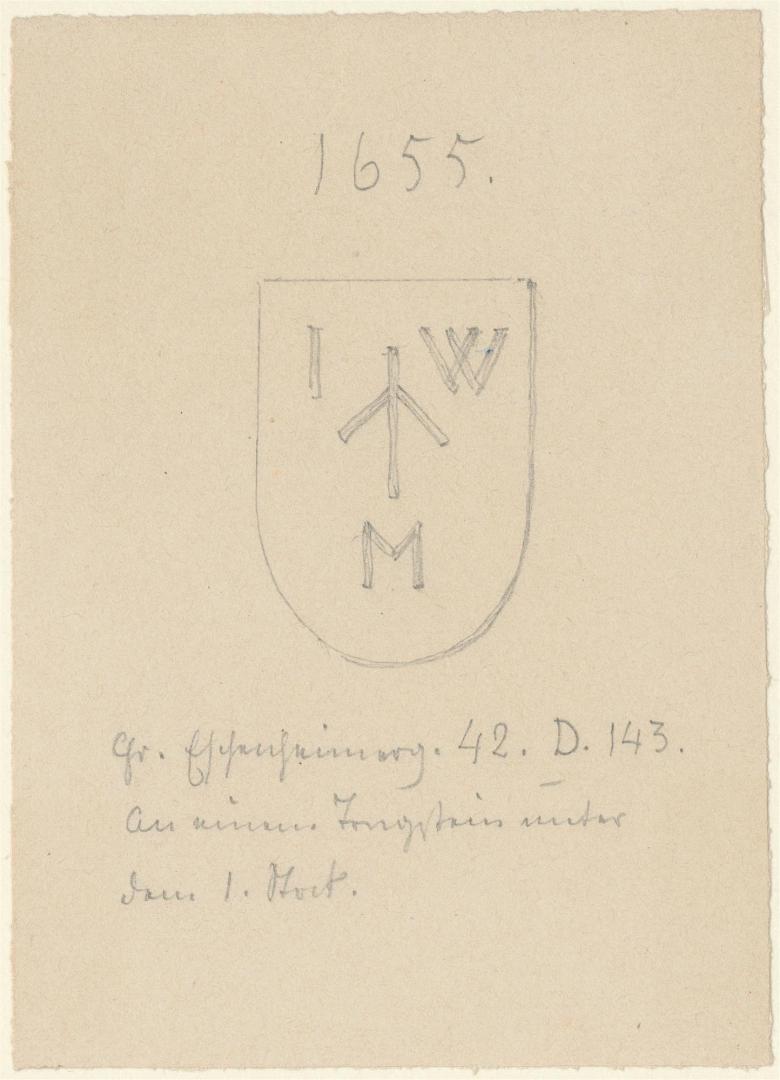 1655.
I W
M
Gr. Eschenheimerg. 42. D. 143.
An einem Tragstein unter
dem 1. Stock.